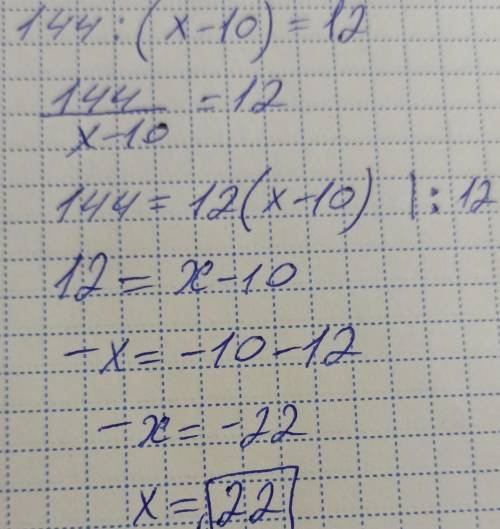 144 : (x-10) = 12
144/x-10 = 12
144 = 12(x-10) |: 12
12 = x-10
-x = -10-12
-x = -22
x = 22